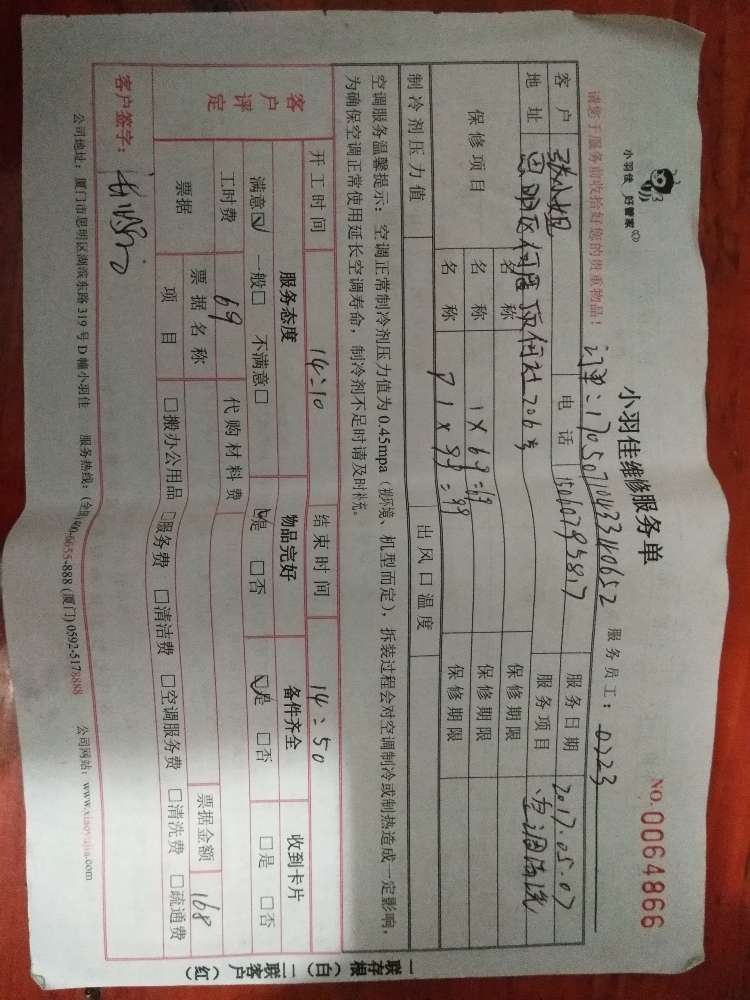 小羽佳 好管家
小羽佳维修服务单
NO.0064866
请您于服务前收拾好您的贵重物品！
订单：17050710433140652
服务员工：0223
客户 张小姐 电话 15060795817 服务日期 2017.05.07
地址 思明区何厝顶何社206号 服务项目 空调清洗
保修项目 名称 保修期限
名称 1×69=69 保修期限
名称 P1×99=99 保修期限
制冷剂压力值 出风口温度
空调服务温馨提示：空调正常制冷剂压力值为0.45mpa（视环境、机型而定），拆装过程会对空调制冷或制热造成一定影响，
为确保空调正常使用延长空调寿命，制冷剂不足时请及时补充。
开工时间 14:10 结束时间 14:50
客户评定 服务态度 物品完好 备件齐全 收到卡片
满意☑ 一般□ 不满意□ ☑是 □否 ☑是 □否 □是 □否
工时费 69 代购材料费
票据 票据名称 票据金额 168
项目 □搬办公用品 □服务费 □清洁费 □空调服务费 □清洗费 □疏通费
客户签字：
公司地址：厦门市思明区湖滨东路319号D幢小羽佳 服务热线：(全国)400-0655-888 (厦门) 0592-5178888 公司网站：www.xiaoyujia.com
一联存根（白）二联客户（红）